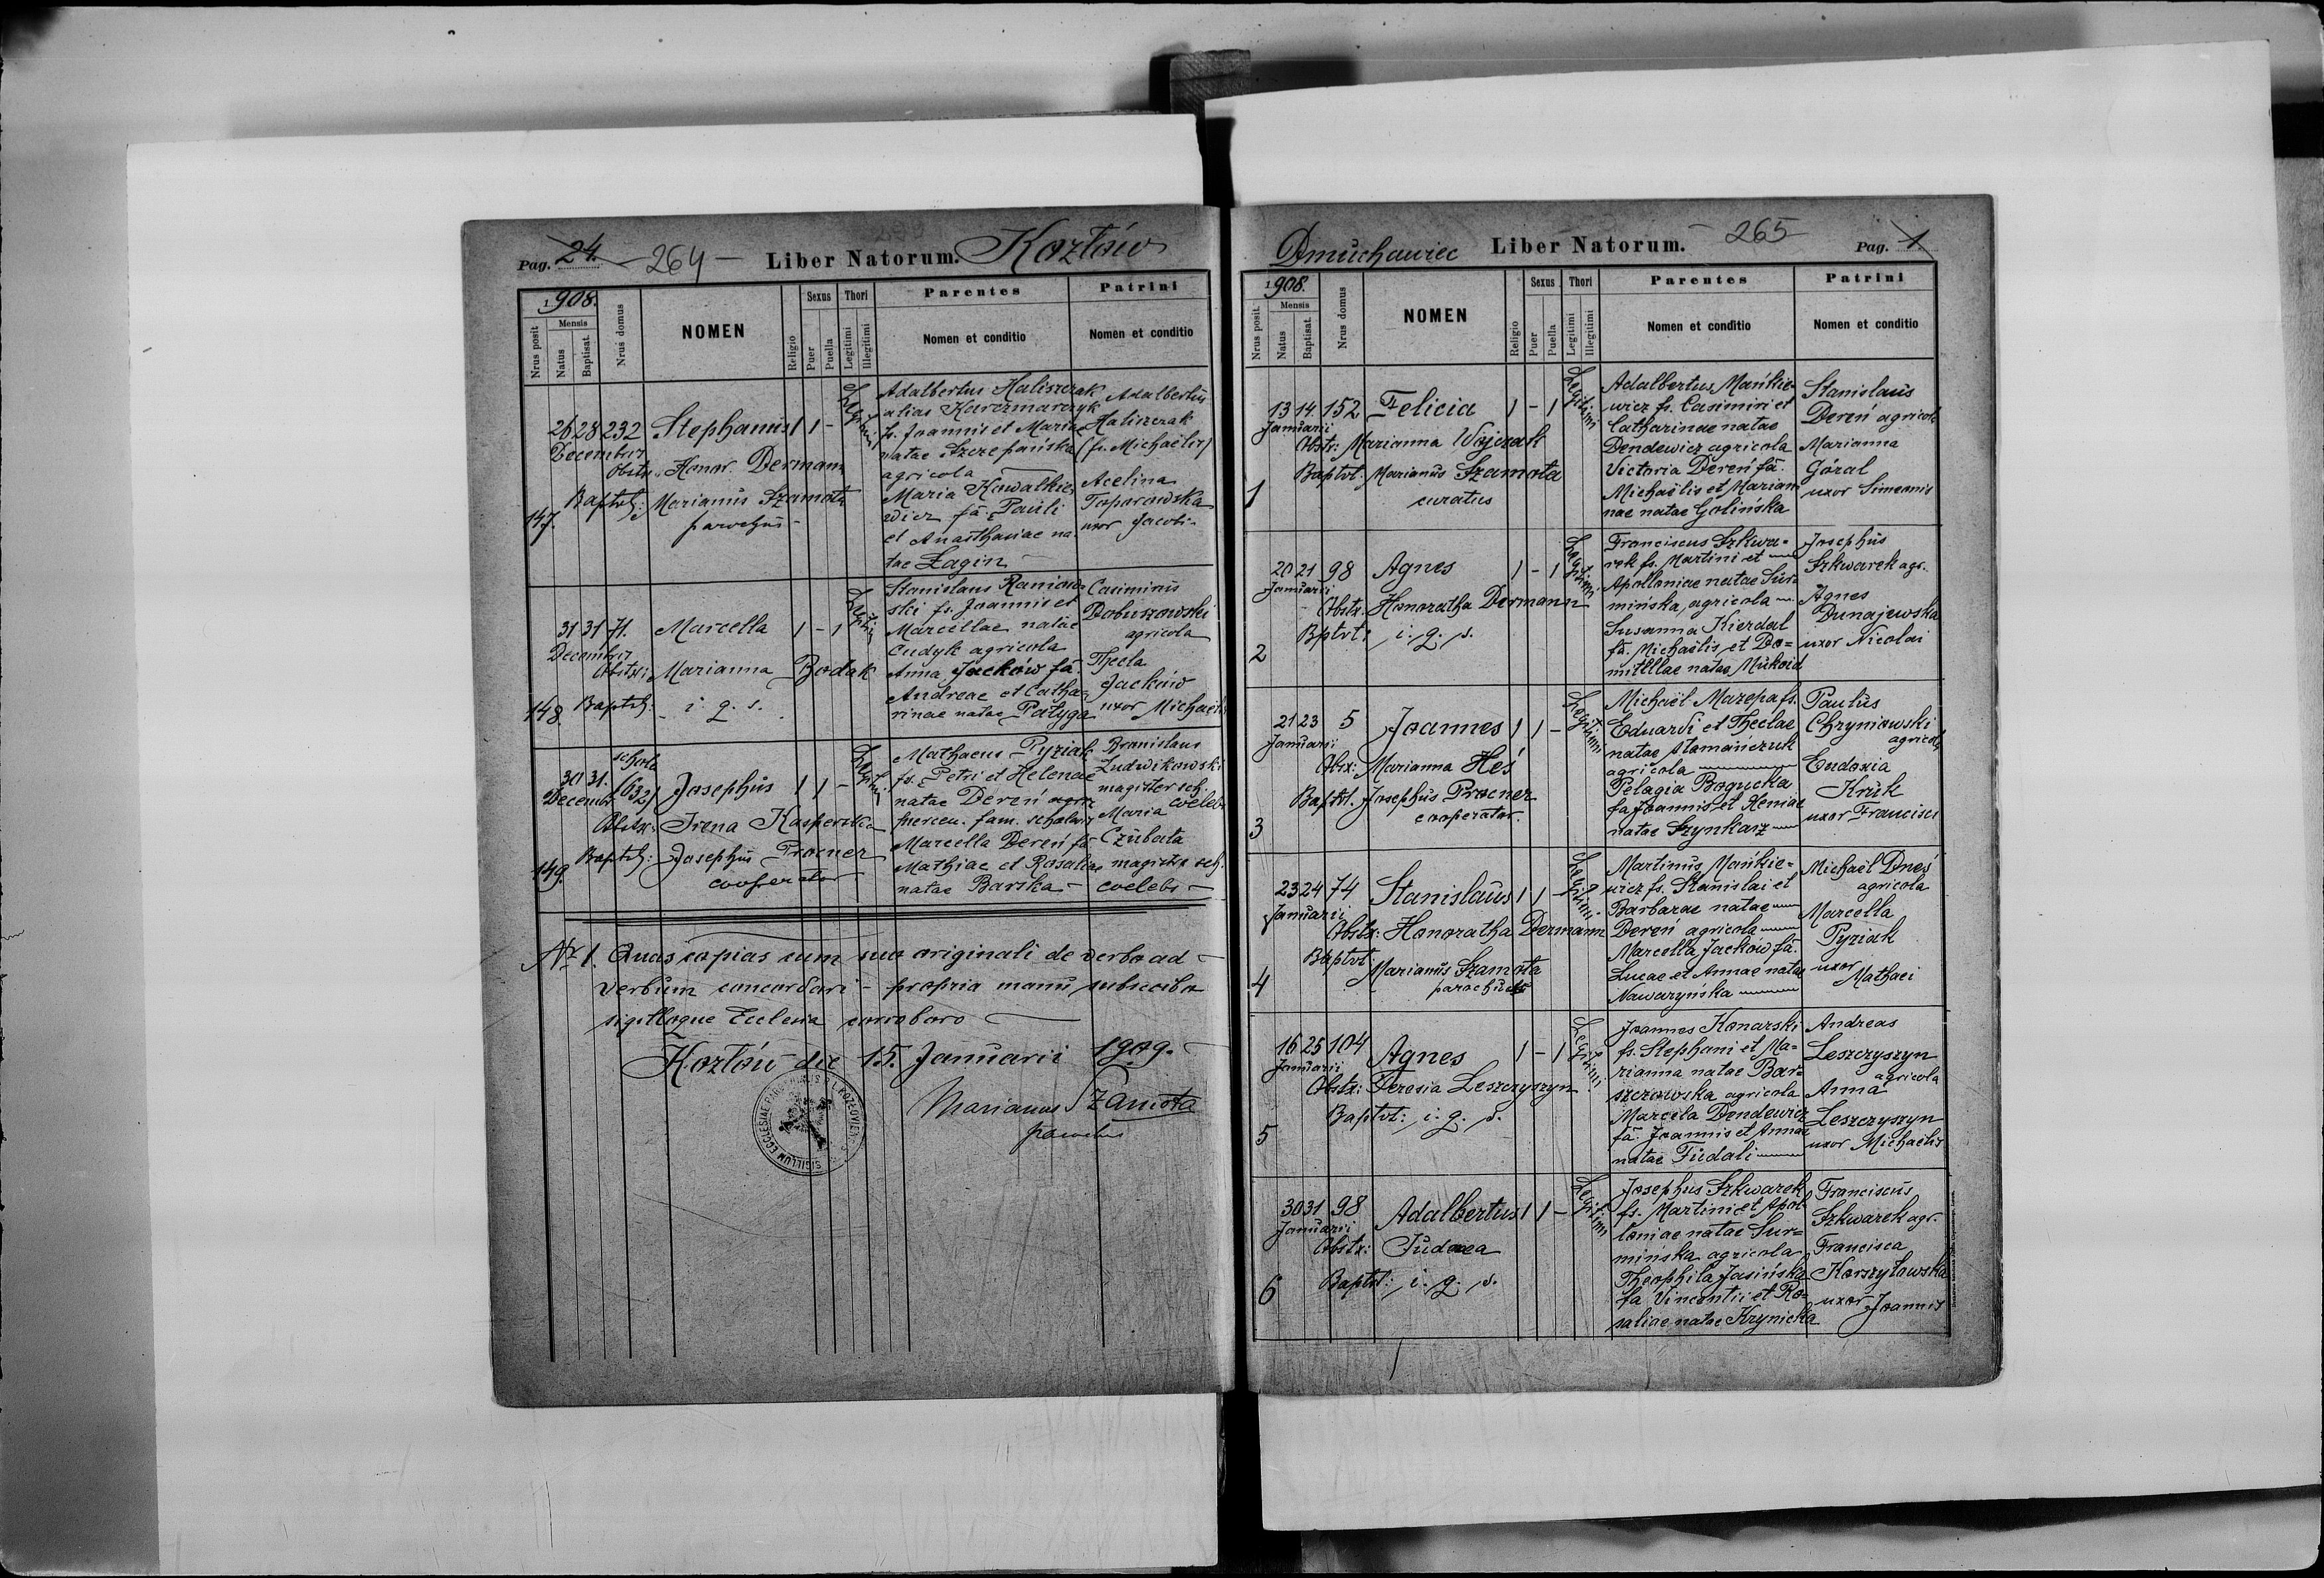 Pag. 24. - 264 - Liber Natorum. Kozłów
1908.
Nrus posit
Mensis
Natus
Baptisat.
Nrus domus
NOMEN
Religio
Sexus
Puer
Puella
Thori
Legitimi
Illegitimi
Parentes
Nomen et conditio
Patrini
Nomen et conditio
147.
26 28 232 Stephanus 1 1 -
Decembris
Obstr. Honor. Dermann
Baptst: Marianus Szamota
parochus -
Legitimi
Adalbertus Haliszczak
alias Karczmarczyk
fs. Joannis et Mariae
natae Szczepańska
agricola
Maria Kowalkie-
wicz fa. Pauli
et Anasthasiae na-
tae Łagin
Adalbertus
Haliszczak
(fs. Michaelis)
Acelina
Toporowska
uxor Jacobi -
148.
31 31 71. Marcella 1 - 1
Decembris
Obstx: Marianna Bodak
Baptst: i. q. s.
Legitimi
Stanislaus Raniow-
ski fs. Joannis et
Marcellae natae
Cudyk agricola
Anna Jacków fa.
Andreae et Catha-
rinae natae Pałyga
Casimirus
Dobuszowski
agricola
Thecla
Jacków
uxor Michaelis
149.
schola
30 31. (632) Josephus 1 1 -
Decembr.
Obstx: Irena Kasperska
Baptst: Josephus Procner
cooperator
Legitimi
Mathaeus Pyziak
fs. Petri et Helenae
natae Dereń
mercen. fam. scholaris
Marcella Dereń fa.
Mathiae et Rosaliae
natae Barska -
Bronislaus
Ludwikowski
magister sch.
coelebs
Maria
Czubata
magistra sch.
coelebs -
Nr 1. Quas copias cum suo originali de verbo ad -
verbum concordari - propria manu subscribo
sigilloque Ecclesia corroboro
Kozłów die 15. Januarii 1909.
Marianus Szamota
parochus
SIGILLUM ECCLESIAE
Dmuchawiec Liber Natorum. - 265 Pag. 1.
1908.
Nrus posit.
Mensis
Natus
Baptisat.
Nrus domus
NOMEN
Religio
Sexus
Puer
Puella
Thori
Legitimi
Illegitimi
Parentes
Nomen et conditio
Patrini
Nomen et conditio
1
13 14. 152 Felicia 1 - 1
Januarii
Obstr: Marianna Wojczak
Baptst: Marianus Szamota
curatus
Legitimi
Adalbertus Mańkie-
wicz fs. Casimiri et
Catharinae natae
Dendewicz agricola
Victoria Dereń fa.
Michaëlis et Marian
nae natae Golińska
Stanislaus
Dereń agricola
Marianna
Góral
uxor Simeonis
2
20 21 98 Agnes 1 - 1
Januarii
Obstx. Honoratha Dermann
Bptst: i. q. s.
Legitimi
Franciscus Szkwa-
rek fs. Martini et
Apolloniae natae Sur-
mińska agricola
Susanna Kierdal
fa. Michaëlis et Do-
mitllae natae Mukoid
Josephus
Szkwarek agr.
Agnes
Dunajewska
uxor Nicolai
3
21 23 5 Joannes 1 1 -
Januarii
Obsx: Marianna Heś
Baptst. Josephus Procner
cooperator.
Legitimi
Michaël Mazepa fs.
Eduardi et Theclae
natae Stomańczuk
agricola
Pelagia Bogucka
fa Joannis et Xeniae
natae Szynkarz
Paulus
Chryniowski
agricola
Eudoxia
Kruk
uxor Francisci
4
23 24 74 Stanislaus 1 1 -
Januarii
Obstx: Honoratha Dermann
Baptst:
Marianus Szamota
parochus
Legitimi
Martinus Mańkie-
wicz fs. Stanislai et
Barbarae natae
Dereń agricola
Marcella Jacków fa.
Lucae et Annae natae
Nawaryńska
Michaël Dneś
agricola
Marcella
Pyziak
uxor
Mathaei
5
16 25 104 Agnes 1 - 1
Januarii
Obstx: Teresia Leszczyszyn
Baptst: i. q. s.
Legitimi
Joannes Konarski
fs. Stephani et Ma-
rianna natae Bar-
szczowska agricola
Marcela Dendewicz
fa. Joannis et Annae
natae Fudali
Andreas
Leszczyszyn
agricola
Anna
Leszczyszyn
uxor Michaëlis
6
30 31 98 Adalbertus 1 1 -
Januarii
Obstx: Judaea
Baptst: i. q. s.
Legitimi
Josephus Szkwarek
fs. Martini et Apol-
loniae natae Sur-
mińska agricola
Theophila Jasińska
fa Vincentii et Ro-
saliae natae Krynicka
Franciscus
Szkwarek agr.
Francisca
Korszyłowska
uxor Joannis